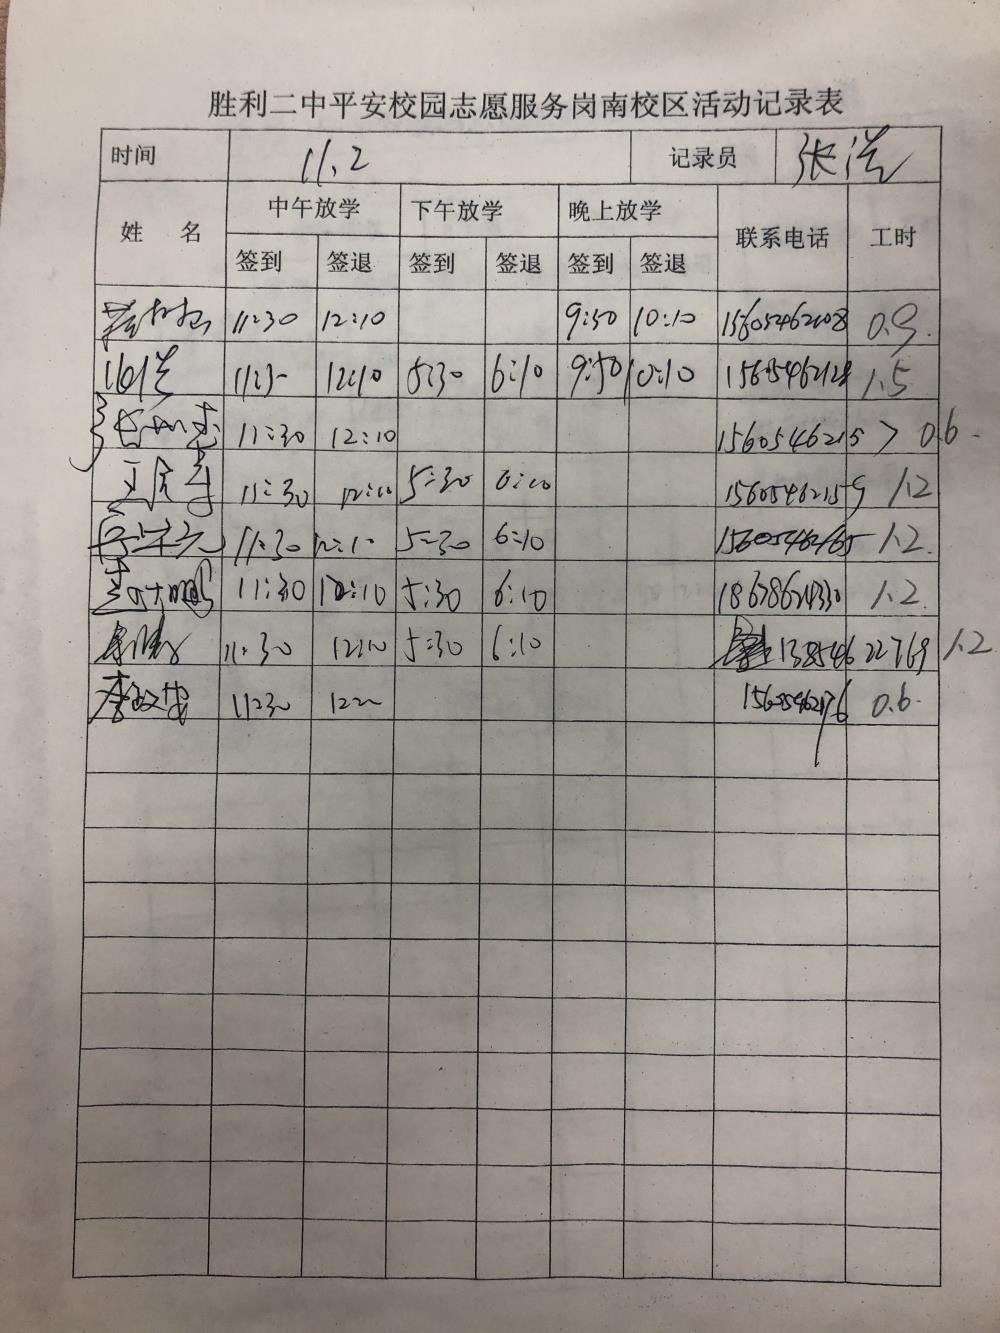 胜利二中平安校园志愿服务岗南校区活动记录表
时间 11.2 记录员 张洪
姓 名 中午放学 下午放学 晚上放学 联系电话 工时
签到 签退 签到 签退 签到 签退
11:30 12:10 9:50 10:10 15605462108 0.9.
11:30 12:10 5:30 6:10 9:50 10:10 15605462128 1.5
11:30 12:10 15605462157 0.6.
11:30 12:10 5:30 6:10 15605462159 1.2
11:30 12:10 5:30 6:10 15605462165 1.2.
11:30 12:10 5:30 6:10 18678621330 1.2.
11:30 12:10 5:30 6:10 13854622769 1.2
李政成 11:30 15605462176 0.6.